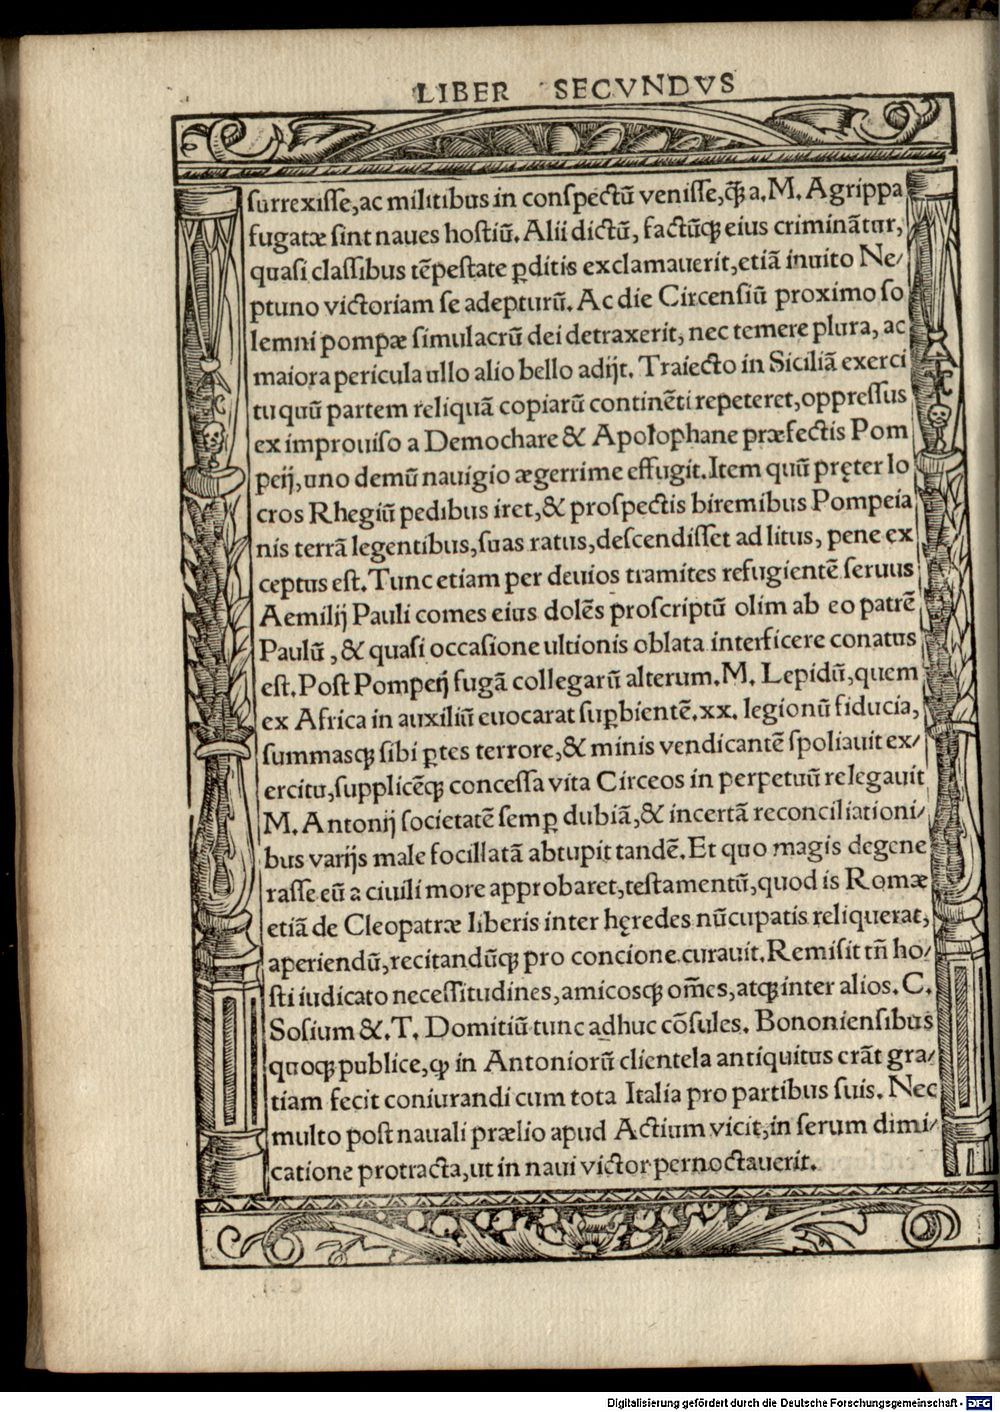 LIBER SECVNDVS
surrexiſſe,ac militibus in conſpectũ veniſſe,q̃ʒ a.M. Agrippa
fugatæ ſint naues hoſtiũ. Alii dictũ, factũqʒ eius criminãtur,
quaſi claſſibus tẽpeſtate ꝑditis exclamauerit,etiã inuito Ne⸗
ptuno victoriam ſe adepturũ. Ac die Circenſiũ proximo ſo
lemni pompæ ſimulacrũ dei detraxerit, nec temere plura, ac
maiora pericula ullo alio bello adijt. Traiecto in Siciliã exerci
tu quũ partem reliquã copiarũ continẽti repeteret,oppreſſus
ex improuiſo a Demochare & Apolophane præfectis Pom
peij,uno demũ nauigio ægerrime effugit.Item quũ pręter lo
cros Rhegiũ pedibus iret,& proſpectis biremibus Pompeia
nis terrã legentibus,ſuas ratus,deſcendiſſet ad litus, pene ex
ceptus eſt.Tunc etiam per deuios tramites refugientẽ ſeruus
Aemilij Pauli comes eius dolẽs proſcriptũ olim ab eo patrẽ
Paulũ,& quaſi occaſione ultionis oblata interficere conatus
eſt.Poſt Pompeij fugã collegarũ alterum.M. Lepidũ,quem
ex Africa in auxiliũ euocarat ſuꝑbientẽ.xx. legionũ fiducia,
ſummasqʒ ſibi ꝑtes terrore,& minis vendicantẽ ſpoliauit ex⸗
ercitu,ſupplicẽqʒ conceſſa vita Circeos in perpetuũ relegauit
M. Antonij ſocietatẽ ſemꝑ dubiã,& incertã reconciliationi⸗
bus varijs male focillatã abtupit tandẽ.Et quo magis degene
raſſe eũ a ciuili more approbaret,teſtamentũ,quod is Romæ
etiã de Cleopatræ liberis inter hęredes nũcupatis reliquerat,
aperiendũ,recitandũqʒ pro concione curauit.Remiſit tñ ho⸗
ſti iudicato neceſſitudines,amicosqʒ om̃es,atqʒ inter alios.C.
Soſium &.T. Domitiũ tunc adhuc cõſules. Bononienſibus
quoqʒ publice,ꝙ in Antoniorũ clientela antiquitus erãt gra⸗
tiam fecit coniurandi cum tota Italia pro partibus ſuis. Nec
multo poſt nauali prælio apud Actium vicit,in ſerum dimi⸗
catione protracta,ut in naui victor pernoctauerit.
Digitalisierung gefördert durch die Deutsche Forschungsgemeinschaft - DFG